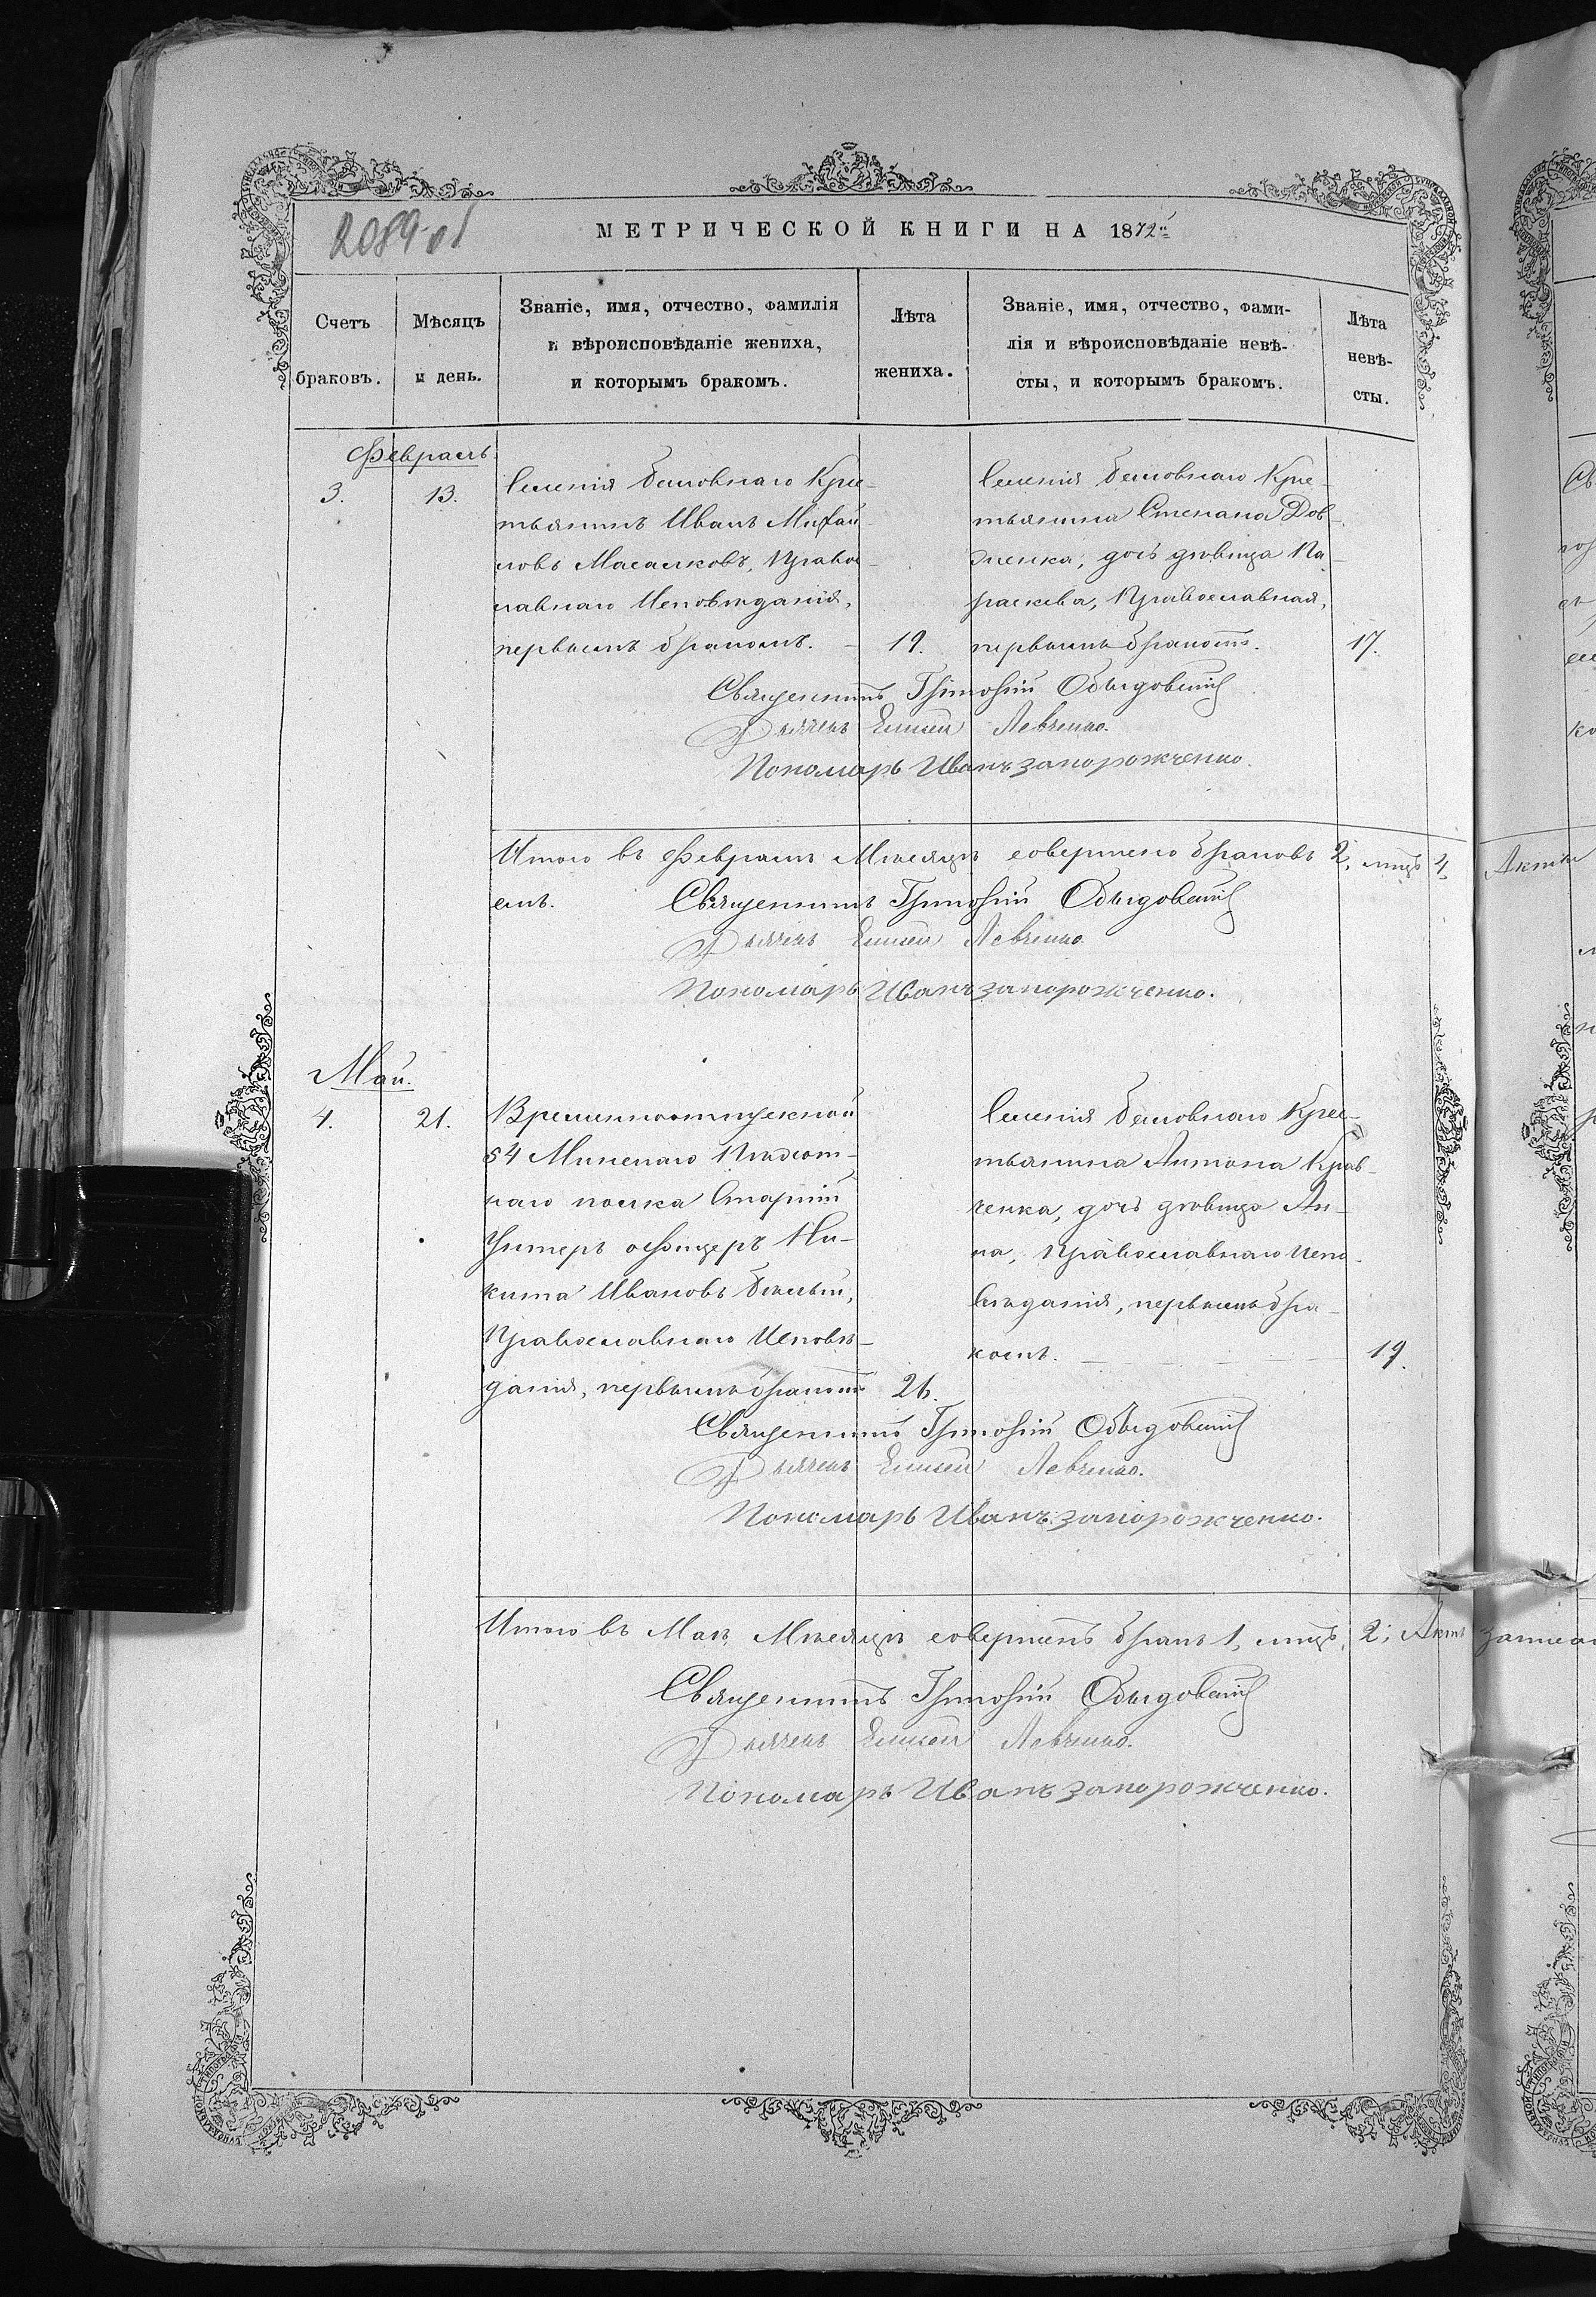 2089 об
МЕТРИЧЕСКОЙ КНИГИ НА 1872й
Счетъ браковъ.
Мѣсяцъ и день.
Званіе, имя, отчество, фамилія
и вѣроисповѣданіе жениха,
и которымъ бракомъ.
Лѣта жениха.
Званіе, имя, отчество, фами-
лія и вѣроисповѣданіе невѣ-
сты, и которымъ бракомъ.
Лѣта невѣ-
сты.
Февраль
3.
13.
Селенія Бѣловнаго Крес-
тьянинъ Иванъ Михаи-
ловъ Масалковъ, Правос-
лавнаго Исповѣданія,
первымъ бракомъ. - 19.
Селенія Бѣловнаго Кре-
стьянина Степана Дов-
женка, дочь дѣвица Па-
раскева, Православная,
первымъ бракомъ. 17.
Священникъ Обыдовскій
Дьячекъ Елисей Левченко.
Пономарь Иванъ Запорожченко.
Итого въ Февралѣ Мѣсяцѣ совершено браковъ 2, лицъ 4, Акты
Священникъ Обыдовскій
Дьячекъ Елисей Левченко.
Пономарь Иванъ Запорожченко.
Май.
4.
21.
Временноотпускной
54 Минскаго Пѣхот-
наго полка Старшій
Унтеръ офицеръ Ни-
кита Ивановъ Бѣлый,
Православнаго Исповѣ-
данія, первымъ бракомъ 26.
Селенія Бѣловнаго Крес-
тьянина Антона Крав-
ченка, дочь дѣвица Ан-
на, Православнаго Испо-
вѣданія, первымъ бра-
комъ. 19.
Священникъ Обыдовскій
Дьячекъ Елисей Левченко.
Пономарь Иванъ Запорожченко.
Итого въ Маѣ Мѣсяцѣ совершенъ бракъ 1, лицъ 2; Актъ записа
Священникъ Обыдовскій
Дьячекъ Елисей Левченко.
Пономарь Иванъ Запорожченко.